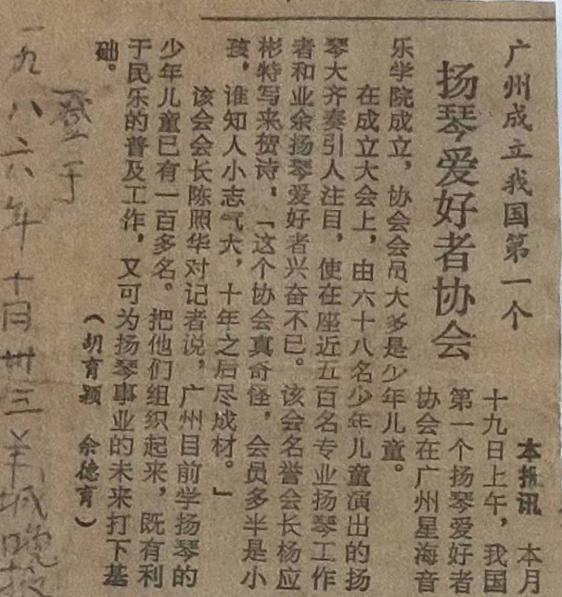 广州成立我国第一个
扬琴爱好者协会
本报讯 本月
十九日上午，我国
第一个扬琴爱好者
协会在广州星海音
乐学院成立，协会会员大多是少年儿童。
在成立大会上，由六十八名少年儿童演出的扬
琴大齐奏引人注目，使在座近五百名专业扬琴工作
者和业余扬琴爱好者兴奋不已。该会名誉会长杨应
彬特写来贺诗，「这个协会真奇怪，会员多半是小
孩，谁知人小志气大，十年之后尽成材。」
该会会长陈照华对记者说，广州目前学扬琴的
少年儿童已有一百多名。把他们组织起来，既有利
于民乐的普及工作，又可为扬琴事业的未来打下基
础。
（胡育颖 余德育）
登于
一九八六年十月廿三羊城晚报